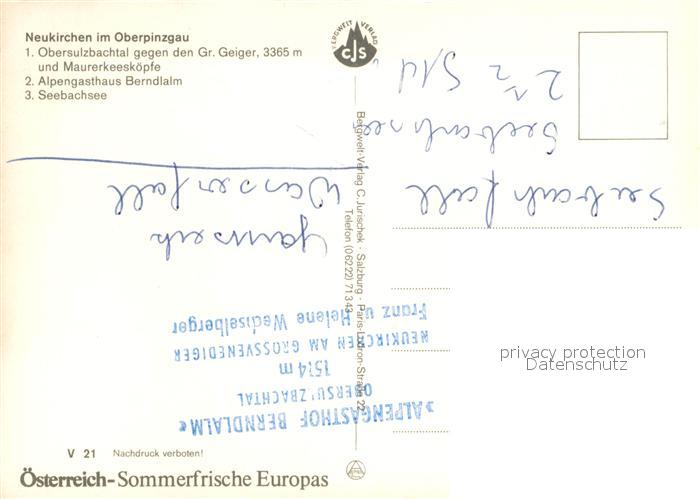 Neukirchen im Oberpinzgau
1. Obersulzbachtal gegen den Gr. Geiger, 3365 m
und Maurerkeesköpfe
2. Alpengasthaus Berndlalm
3. Seebachsee
BERGWELT VERLAG
CJS
Bergwelt-Verlag C. Jurischek · Salzburg · Paris-Lodron-Straße 22
Telefon (06222) 71343
»ALPENGASTHOF BERNDLALM«
OBERSULZBACHTAL
1514 m
NEUKIRCHEN AM GROSSVENEDIGER
Franz u. Helene Wechselberger
Wasserfall
Seebach fall
Seebachsee
2 1/2 Std
privacy protection
Datenschutz
V 21 Nachdruck verboten!
Österreich-Sommerfrische Europas